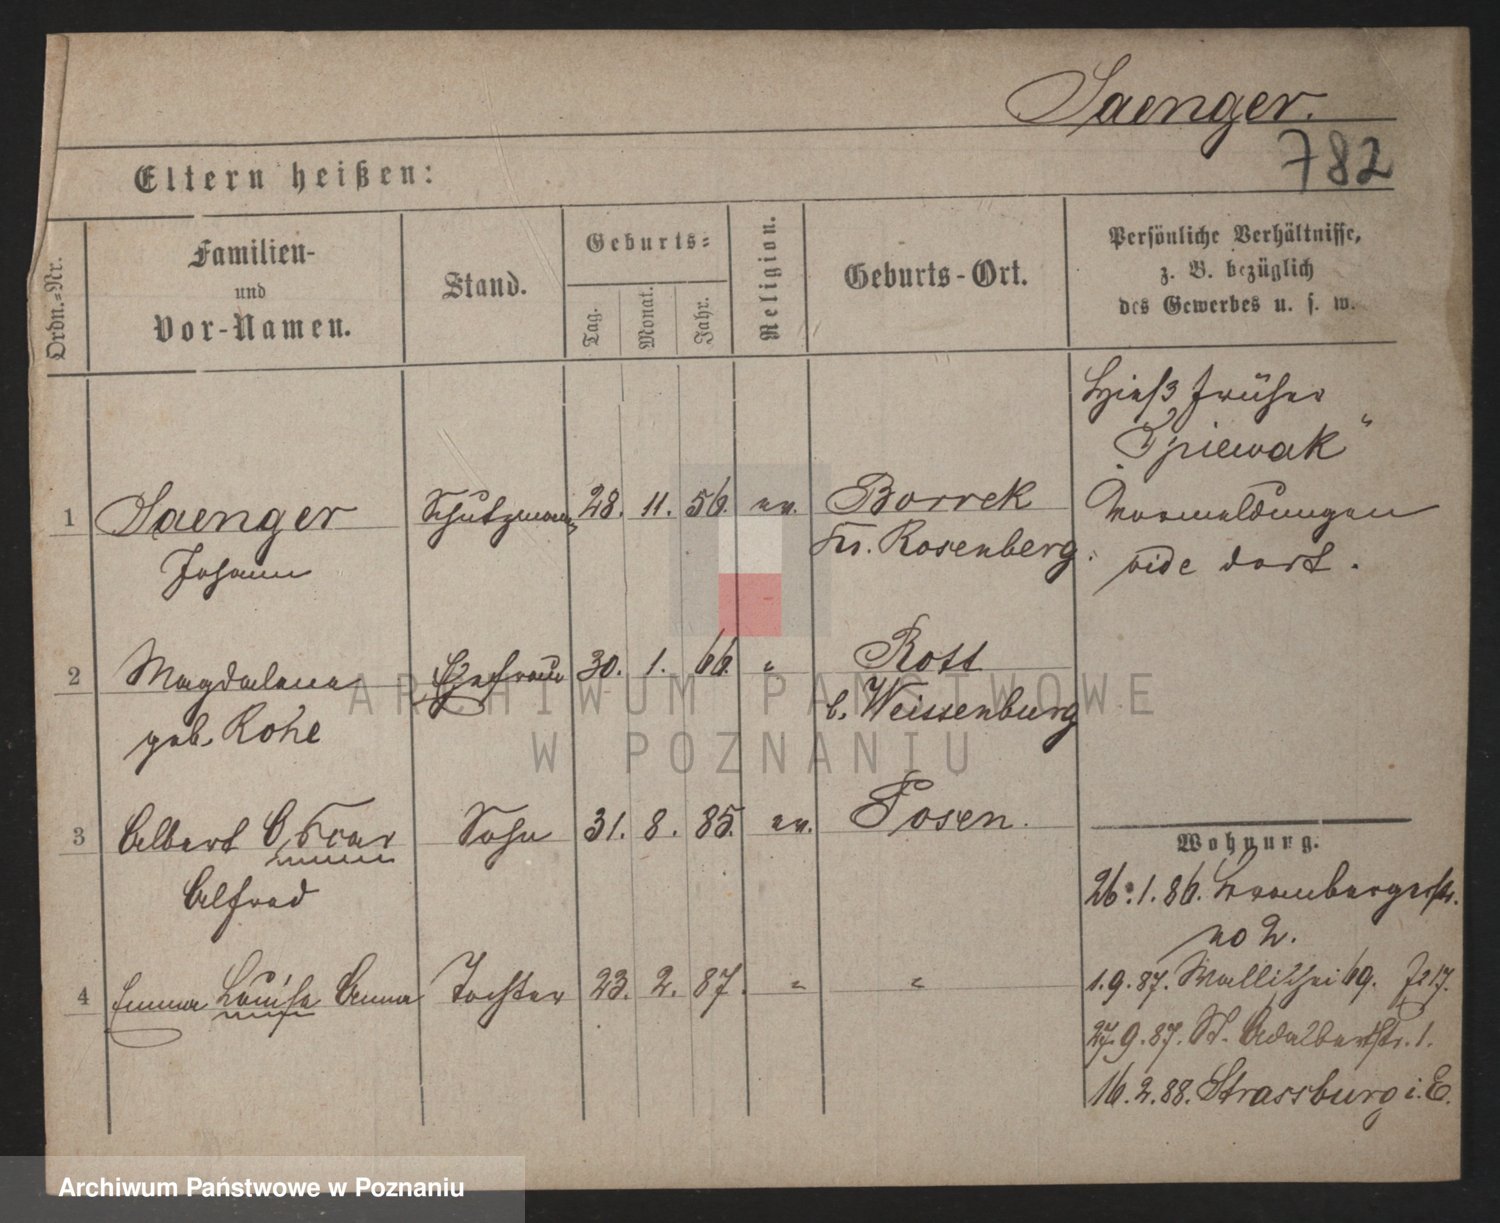 Saenger.
782
Eltern heißen:
Ordn.=Nr.
Familien-
und
Vor-Namen.
Stand.
Geburts=
Tag.
Monat.
Jahr.
Religion.
Geburts-Ort.
Persönliche Verhältnisse,
z. B. bezüglich
des Gewerbes u. s. w.
Hieß früher
„Spiewak“
Vormeldungen
vide dort.
1 Saenger Schutzmann 28. 11. 56. ev. Borrek
Johann Kr. Rosenberg
2 Magdalena Ehefrau 30. 1. 66. " Rott
geb. Rohé b. Weissenburg
3 Albert Oscar Sohn 31. 8. 85. ev. Posen
Alfred
4 Emma Louise Anna Tochter 23. 2. 87. " "
Wohnung.
26.1.86. Brombergerstr.
no 2.
1.9.87. Wallischei 69.
27.9.87. St. Adalbertstr. 1.
16.2.88. Strassburg i. E.
ARCHIWUM PAŃSTWOWE
W POZNANIU
Archiwum Państwowe w Poznaniu